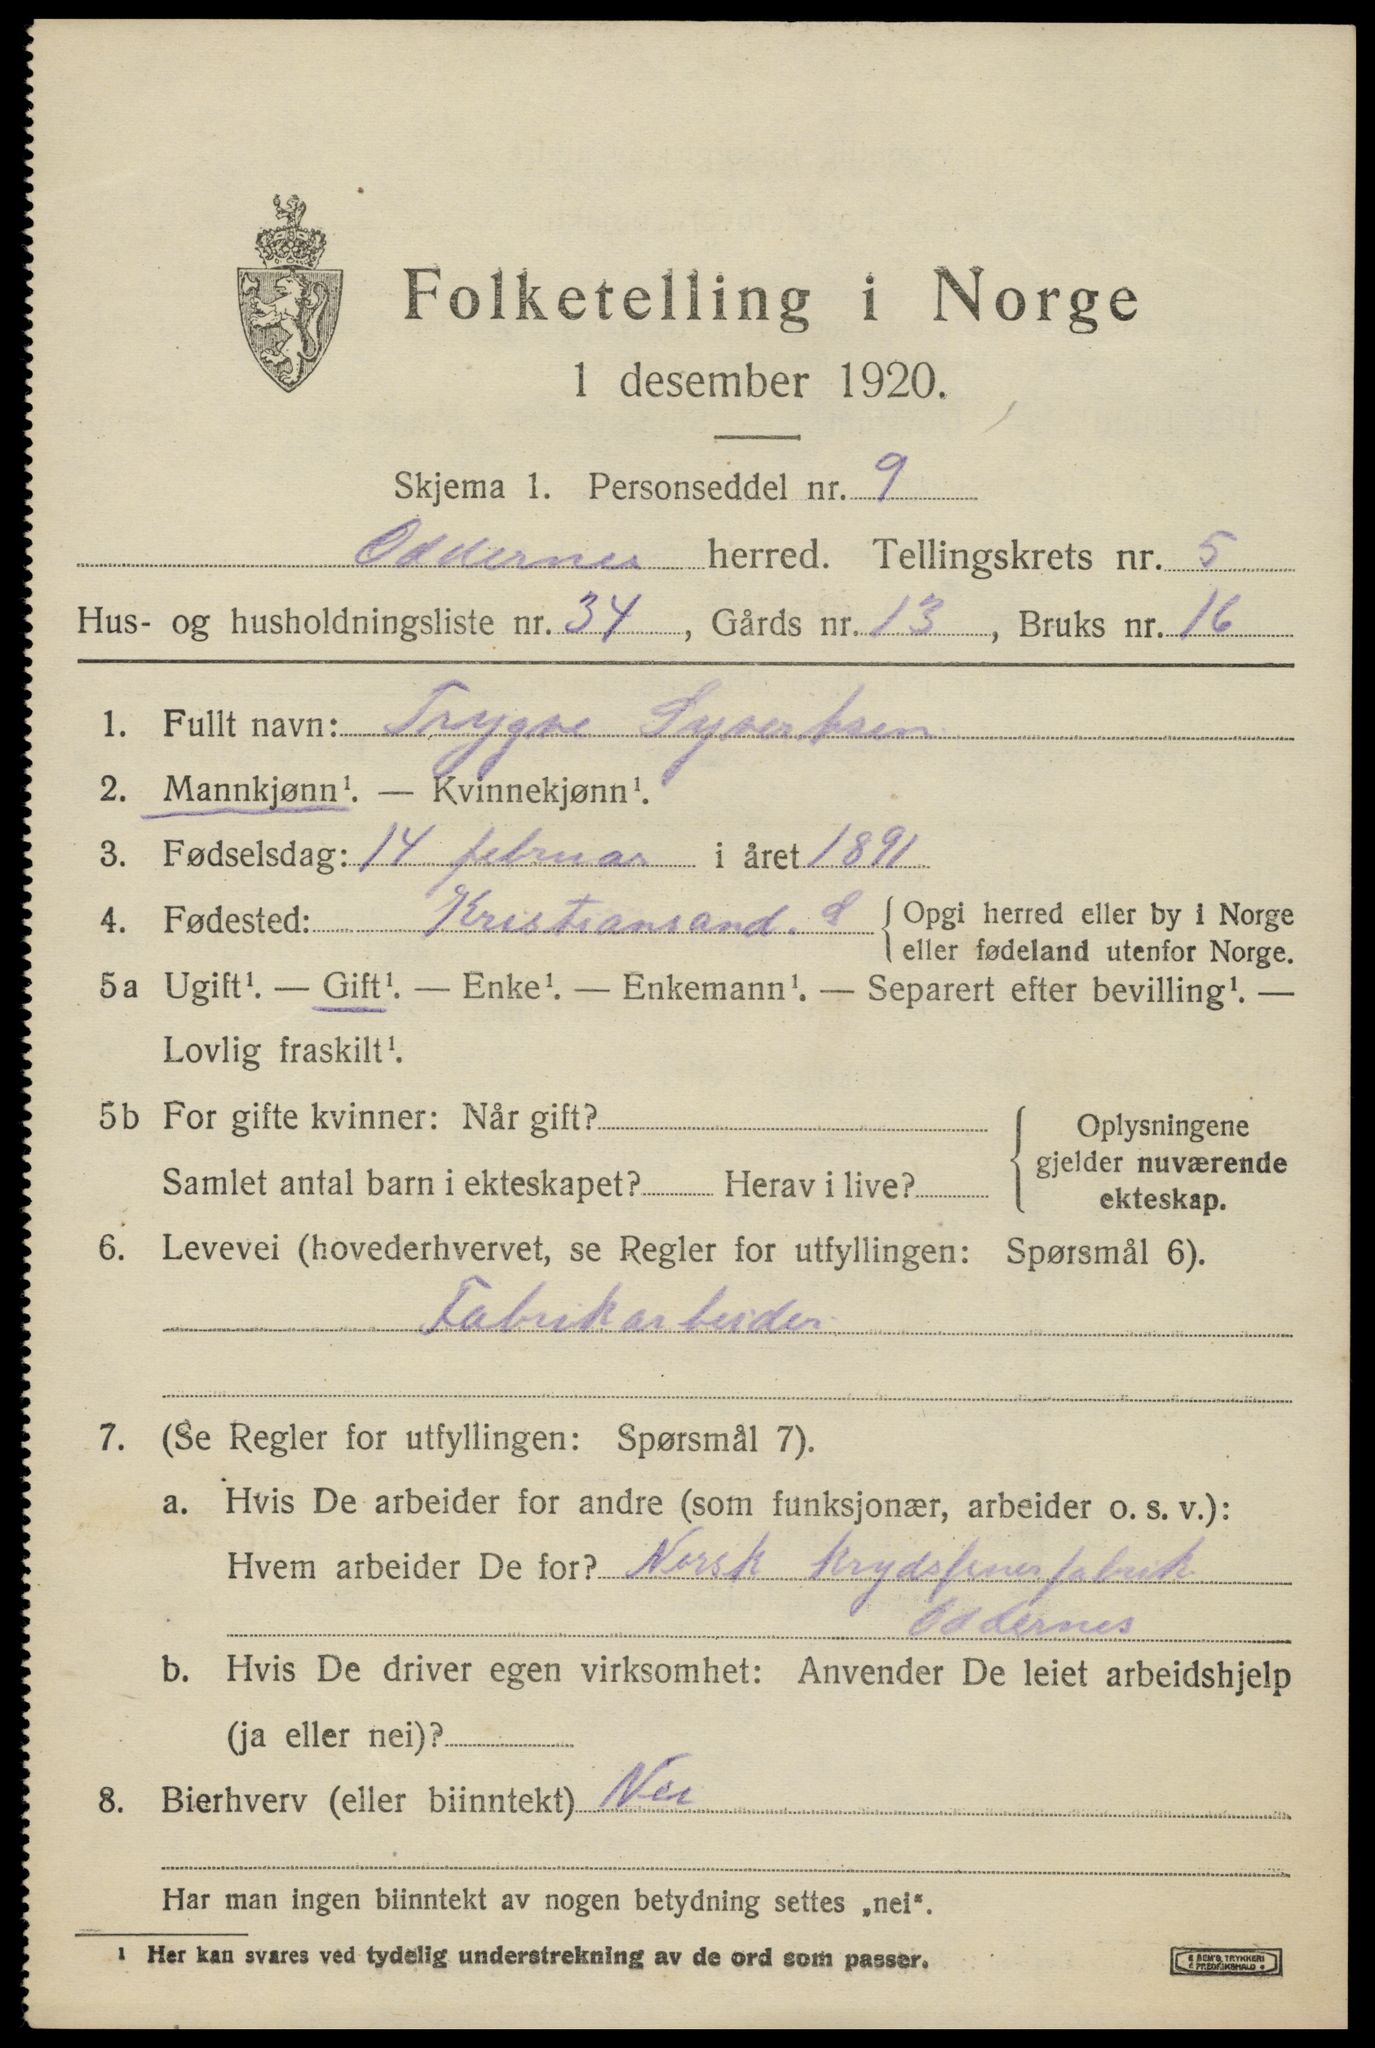 Folketelling i Norge
1 desember 1920.
Skjema 1. Personseddel nr. 9
Oddernes herred. Tellingskrets nr. 5
Hus- og husholdningsliste nr. 34, Gårds nr. 13, Bruks nr. 16
1. Fullt navn: Trygve Syvertsen
2. Mannkjønn¹. — Kvinnekjønn¹.
3. Fødselsdag: 14 februar i året 1891
4. Fødested: Kristiansand. S { Opgi herred eller by i Norge
eller fødeland utenfor Norge.
5a Ugift¹. — Gift¹. — Enke¹. — Enkemann¹. — Separert efter bevilling¹. —
Lovlig fraskilt¹.
5b For gifte kvinner: Når gift?
Samlet antal barn i ekteskapet? Herav i live?
Oplysningene
gjelder nuværende
ekteskap.
6. Levevei (hovederhvervet, se Regler for utfyllingen: Spørsmål 6).
Fabrikarbeider
7. (Se Regler for utfyllingen: Spørsmål 7).
a. Hvis De arbeider for andre (som funksjonær, arbeider o. s. v.):
Hvem arbeider De for? Norsk Krydsfinerfabrik
Oddernes
b. Hvis De driver egen virksomhet: Anvender De leiet arbeidshjelp
(ja eller nei)?
8. Bierhverv (eller biinntekt) Nei
Har man ingen biinntekt av nogen betydning settes „nei“.
¹ Her kan svares ved tydelig understrekning av de ord som passer.
SEM'S TRYKKERI
FREDRIKSHALD